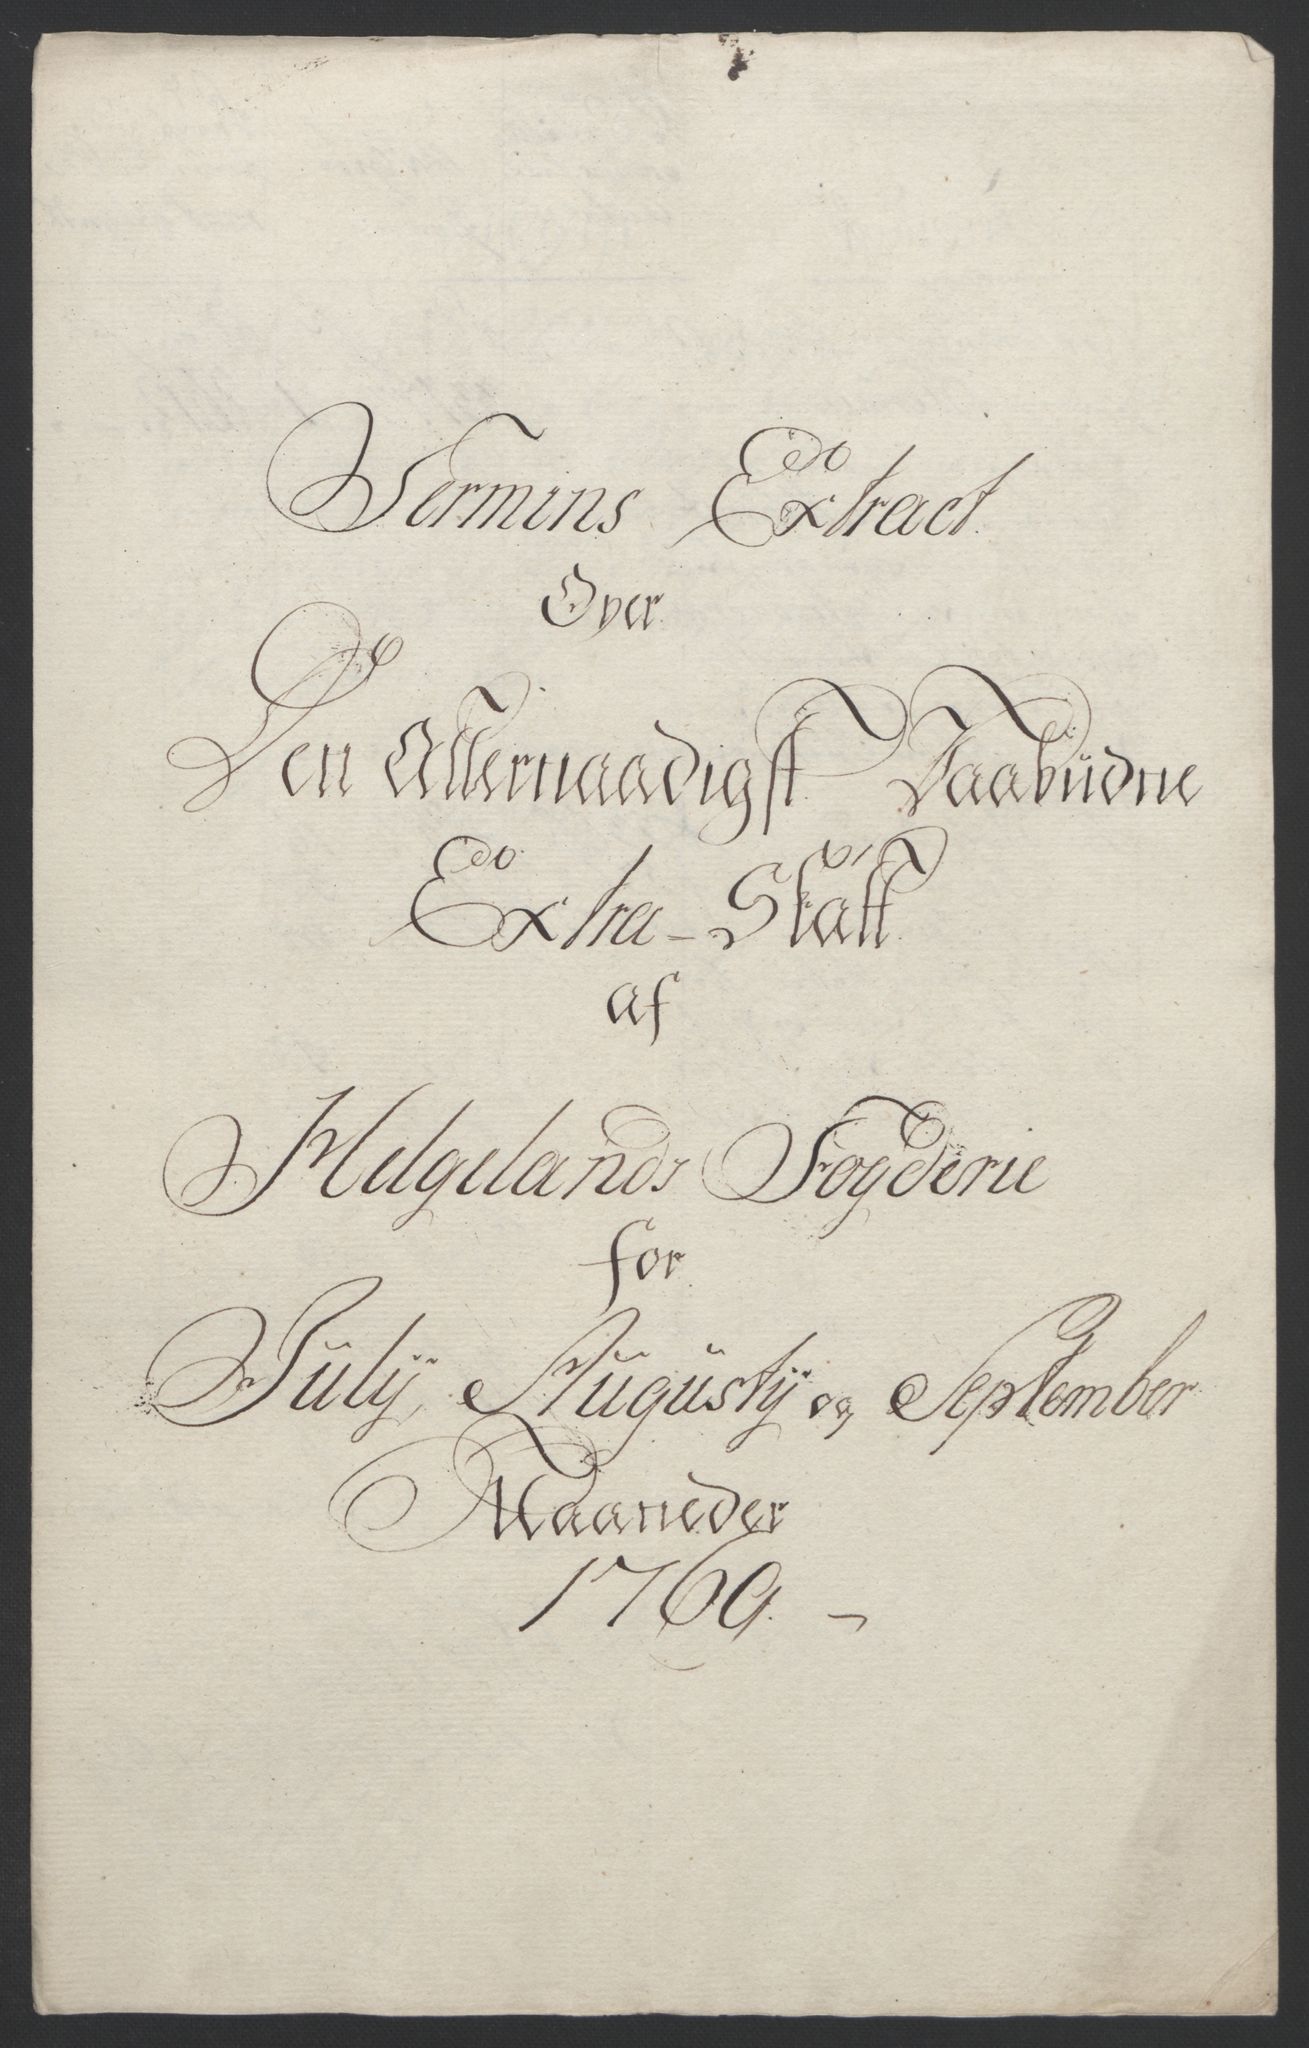 Termins Extract
Over
Den Allernaadigst Paabudne
Extra-Skatt
af
Helgelands Fogderie
for
July, Augusty og September
Maaneder
1769.